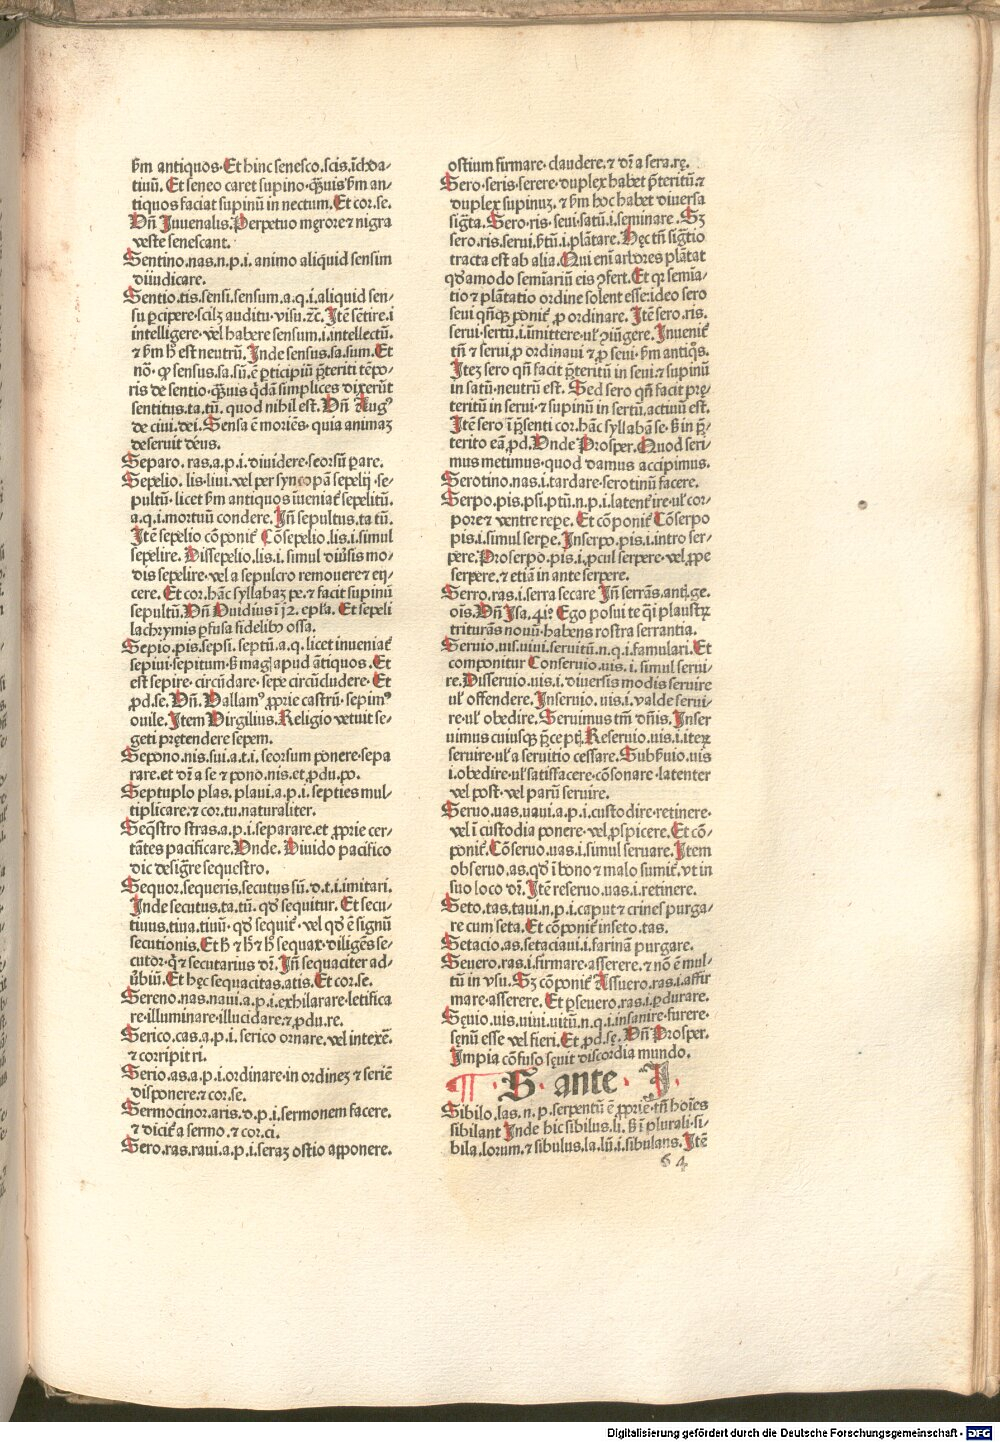 ẜm antiquos. Et hinc senesco.scis. īchōa-
tiuū. Et seneo caret supino. q̄uis ẜm an-
tiquos faciat supinū in nectum. Et cor. se.
Vn̄ Juvenalis. Perpetuo męrore ⁊ nigra
veste senescant.
Sentino.nas.n.p.i. animo aliquid sensim
diiudicare.
Sentio.tis.sensi.sensum.a.q.i.aliquid sen-
su ꝑcipere. scilꝫ auditu. visu. ⁊c̄. Jtē sētire.i
intelligere. vel habere sensum.i.intellectū.
⁊ ẜm ħ est neutrū. Jnde sensus.sa.sum. Et
nō. ꝙ sensus.sa.sū.ē ꝑticipiū p̄teriti tēpo-
ris de sentio. q̄uis q̄dā simplices dixerūt
sentitus.ta.tū. quod nihil est. Vn̄ Augꝰ
de ciui.dei. Sensa ē moriēs. quia animaꝫ
deseruit deus.
Separo.ras.a.p.i. diuidere. seorsū ꝑare.
Sepelio.lis.liui. vel per syncopā sepelij. se-
pultū. licet ẜm antiquos īueniat᷑ sepelitū.
a.q.i.mortuū condere. Jn̄ sepultus.ta.tū.
Jtē sepelio cōponit᷑ Cōsepelio.lis.i.simul
sepelire. Dissepelio.lis.i. simul diūsis mo-
dis sepelire. vel a sepulcro remouere ⁊ eij-
cere. Et cor. hāc syllabaꝫ pe. ⁊ facit supinū
sepultū. Vn̄ Ouidius ī 12. epl'a. Et sepeli
lachrymis ꝑfusa fidelibꝰ ossa.
Sepio.pis.sepsi. septū.a.q. licet inueniat᷑
sepiui. sepitum. ẞ mag̕ apud ātiquos. Et
est sepire. circūdare. sepe circūdudere. Et
ꝓd.se. Vn̄. Vallamꝰ ꝓprie castrū. sepimꝰ
ouile. Jtem Virgilius. Religio vetuit se-
geti prętendere sepem.
Sepono.nis.sui.a.t.i. seorsum ponere. sepa
rare. et dr̄ a se ⁊ pono.nis. et ꝓdu.po.
Septuplo plas.plaui.a.p.i. septies mul-
tiplicare. ⁊ cor.tu.naturaliter.
Seq̄stro stras.a.p.i.separare. et ꝓprie cer-
tātes pacificare. Vnde. Diuido pacifico
dic desigr̄e sequestro.
Sequor.sequeris.secutus sū.d.t.i.imitari.
Jnde secutus.ta.tū. qd̄ sequitur. Et secu-
tiuus.tiua.tiuū. qd̄ sequit᷑. vel qd̄ ē signū
secutionis. Et ħ ⁊ ħ ⁊ ħ sequax. diligēs se-
cutor. q̄ ⁊ secutarius dr̄. Jn̄ sequaciter ad-
ūbiū. Et hęc sequacitas.atis. Et cor.se.
Sereno.nas.naui.a.p.i.exhilarare. letifica
re. illuminare. illucidare. ⁊ ꝓdu.re.
Serico.cas.a.p.i. serico ornare. vel intexē.
⁊ corripit ri.
Serio.as.a.p.i.ordinare. in ordineꝫ ⁊ seriē
disponere. ⁊ cor.se.
Sermocinor.aris.d.p.i.sermonem facere.
⁊ dicit᷑ a sermo. ⁊ cor.ci.
Sero.ras.raui.a.p.i.seraꝫ ostio apponere.
ostium firmare. claudere. ⁊ dr̄ a sera.rę.
Sero.seris.serere. duplex habet p̄teritū. ⁊
duplex supinuꝫ. ⁊ ẜm hoc habet diuersa
sigt̄a. Sero.ris.seui.satū.i.seminare. Sꝫ
sero.ris.serui.ẜtū.i.plātare. Hęc tn̄ sigt̄io
tracta est ab alia. Qui eni arbores plātat
qd̄amodo semīariū eis ꝯfert. Et qꝛ semīa-
tio ⁊ plātatio ordine solent esse. ideo sero
seui qn̄qꝫ ponit᷑ ꝓ ordinare. Jtē sero.ris.
serui. sertū.i.īmittere. ul' ꝯiūgere. Jnuenit᷑
tn̄ ⁊ serui ꝓ ordinaui ⁊ ꝓ seui. ẜm antiq̄s.
Jteꝫ sero qn̄ facit p̄teritū in seui ⁊ supinū
in satū. neutrū est. Sed sero qn̄ facit prę
teritū in serui. ⁊ supinū in sertū. actiuū est.
Jtē sero ī p̄senti cor. hāc syllabā se. ẞ in p̄-
terito eā ꝓd. Vnde Prosper. Quod seri
mus metimus. quod damus accipimus.
Serotino.nas.i.tardare. serotinū facere.
Serpo.pis.psi.ptū.n.p.i.latent᷑ ire. ul' cor-
pore ⁊ ventre repe. Et cōponit᷑ Cōserpo
pis.i.simul serpe. Jnserpo.pis.i.intro ser-
pere. Proserpo.pis.i.ꝓcul serpere. vel ꝓpe
serpere. ⁊ etiā in ante serpere.
Serro.ras.i.serra secare Jn̄ serrās.anti.ge.
ois. Vn̄ Jsa.41º Ego posui te q̄i plaustꝝ
triturās nouū. habens rostra serrantia.
Seruio.uis.uiui.seruitū.n.q.i.famulari. Et
componitur Conseruio.uis.i.simul serui-
re. Disseruio.uis.i.diuersis modis seruire
ul' offendere. Jnseruio.uis.i.valde serui-
re. ul' obedire. Seruimus tm̄ dn̄is. Jnser
uimus cuiusqꝫ p̄cepti. Reseruio.uis.i.iteꝝ
seruire. ul' a seruitio cessare. Subẜuio.uis
i.obedire. ul' satisfacere. cōsonare. latenter
vel post. vel parū seruire.
Seruo.uas.uaui.a.p.i.custodire. retinere.
vel ī custodia ponere. vel ꝑspicere. Et cō-
ponit᷑. Cōseruo.uas.i.simul seruare. Jtem
obseruo.as. qd̄ ī bono ⁊ malo sumit᷑. vt in
suo loco dr̄. Jtē reseruo.uas.i.retinere.
Seto.tas.taui.n.p.i.caput ⁊ crines purga-
re cum seta. Et cōponit᷑ inseto.tas.
Setacio.as.setaciaui.i.farinā purgare.
Seuero.ras.i.firmare. asserere. ⁊ nō ē mul-
tū in vsu. Sꝫ cōponit᷑ Assuero.ras.i.affir
mare. asserere. Et ꝑseuero.ras.i.ꝑdurare.
Sęuio.uis.uiui.uitū.n.q.i.insanire. furere.
sęuū esse vel fieri. Et ꝓd.sę. Vn̄ Prosper.
Jmpia cōfuso sęuit discordia mundo.
¶ S. ante. J.
Sibilo.las.n.p.serpentū ē ꝓprie. tn̄ hoīes
sibilant Jnde hic sibilus.li. ẞ ī plurali. si-
bila.lorum. ⁊ sibulus.la.lū.i.sibulans. Jtē
64
Digitalisierung gefördert durch die Deutsche Forschungsgemeinschaft - DFG